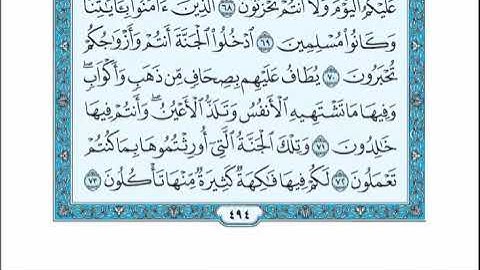 عَلَيْكُمُ الْيَوْمَ وَلَا أَنتُمْ تَحْزَنُونَ ٦٨ الَّذِينَ ءَامَنُوا بِـَٔايَاتِنَا
وَكَانُوا مُسْلِمِينَ ٦٩ ادْخُلُوا الْجَنَّةَ أَنتُمْ وَأَزْوَاجُكُمْ
تُحْبَرُونَ ٧٠ يُطَافُ عَلَيْهِم بِصِحَافٍ مِّن ذَهَبٍ وَأَكْوَابٍ ۖ
وَفِيهَا مَا تَشْتَهِيهِ الْأَنفُسُ وَتَلَذُّ الْأَعْيُنُ ۖ وَأَنتُمْ فِيهَا
خَالِدُونَ ٧١ وَتِلْكَ الْجَنَّةُ الَّتِي أُورِثْتُمُوهَا بِمَا كُنتُمْ
تَعْمَلُونَ ٧٢ لَكُمْ فِيهَا فَاكِهَةٌ كَثِيرَةٌ مِّنْهَا تَأْكُلُونَ ٧٣
٤٩٤